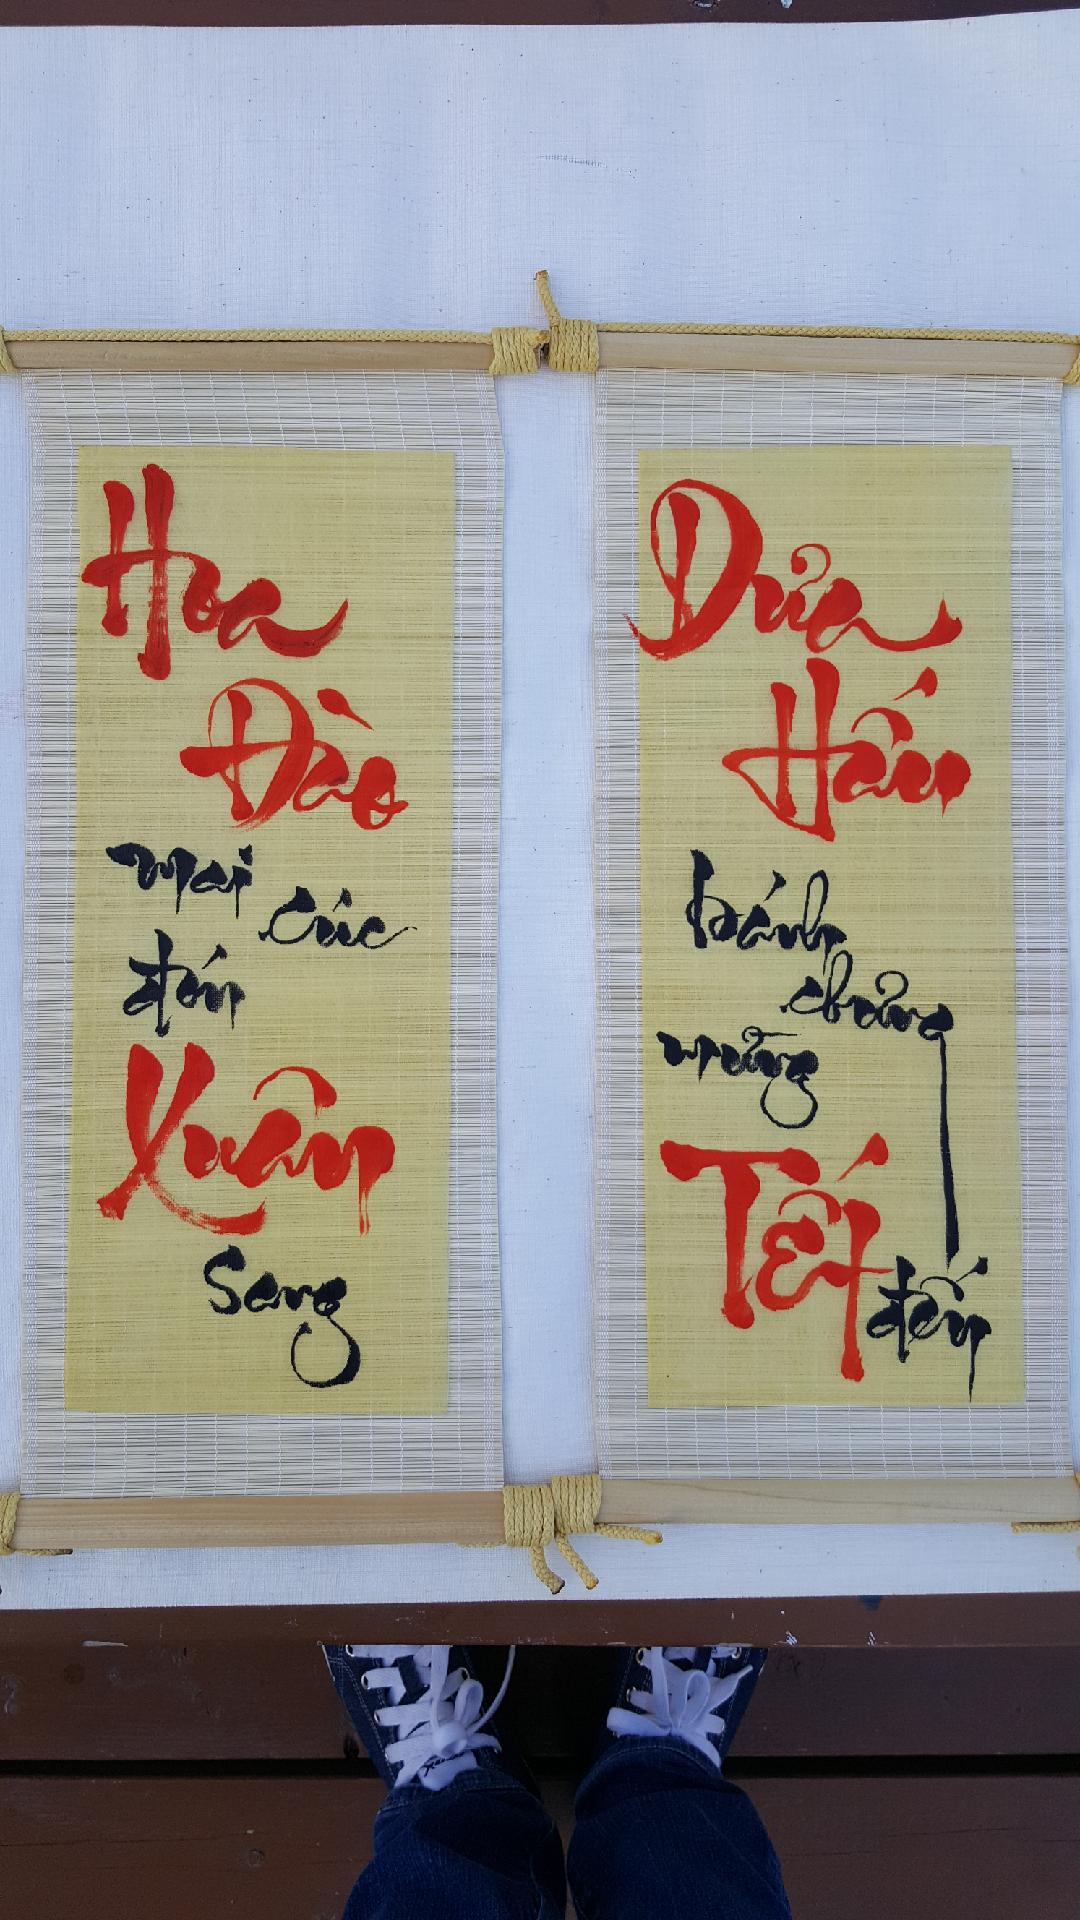 Hoa
Đào
mai cúc
đón
Xuân
sang
Dưa
Hấu
bánh
chưng
mừng
Tết
đến